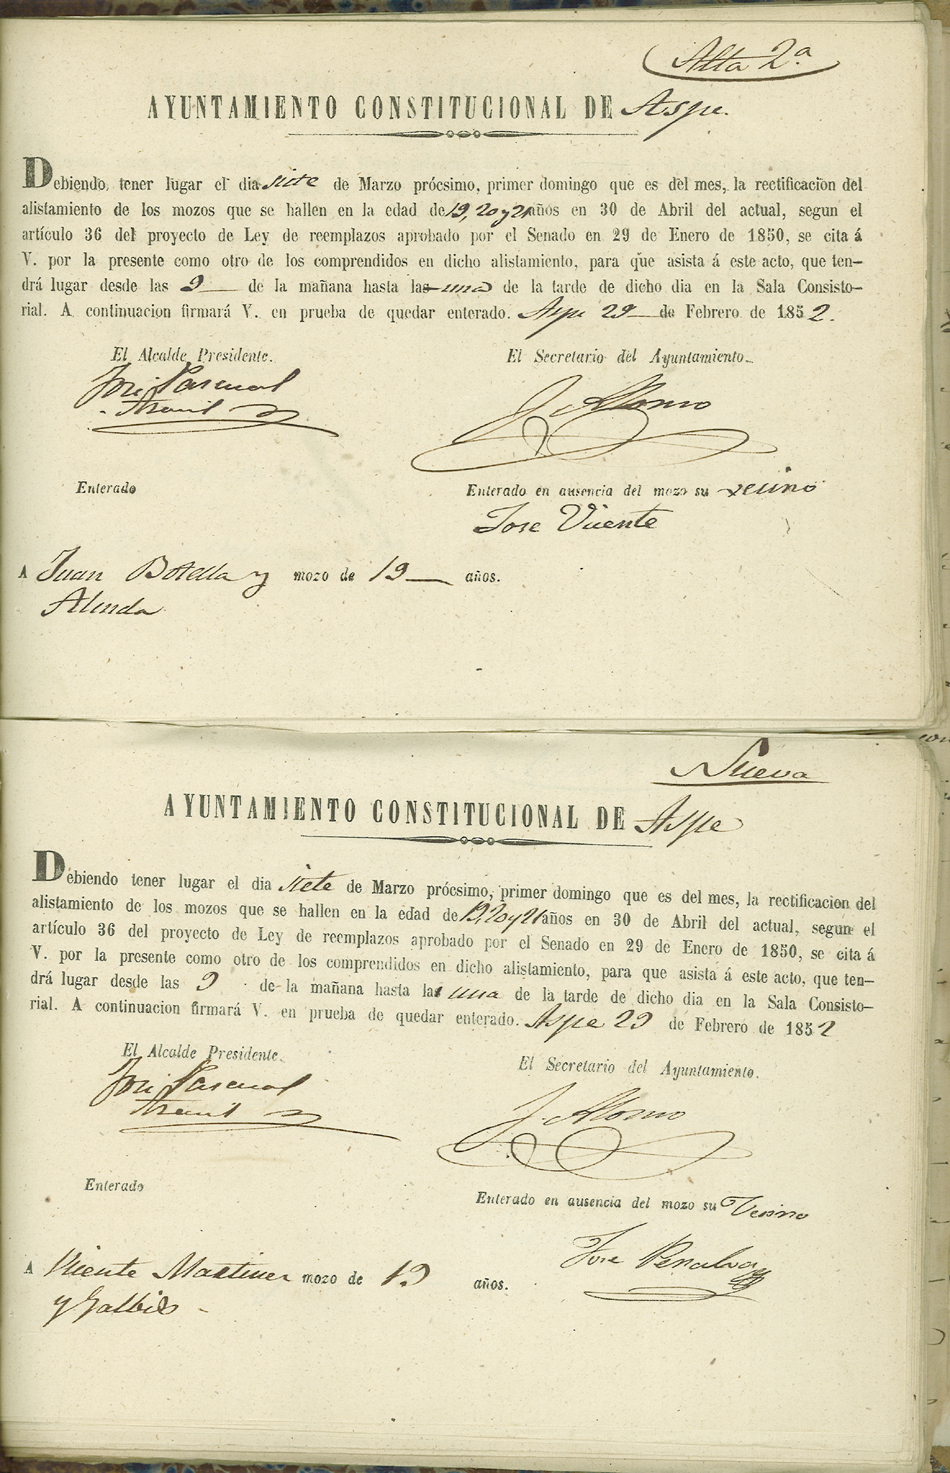 Alta 2.ª
AYUNTAMIENTO CONSTITUCIONAL DE Aspe.
Debiendo tener lugar el dia siete de Marzo prócsimo, primer domingo que es del mes, la rectificacion del
alistamiento de los mozos que se hallen en la edad de 19, 20 y 21 años en 30 de Abril del actual, segun el
artículo 36 del proyecto de Ley de reemplazos aprobado por el Senado en 29 de Enero de 1850, se cita á
V. por la presente como otro de los comprendidos en dicho alistamiento, para que asista á este acto, que ten–
drá lugar desde las 9 de la mañana hasta las una de la tarde de dicho dia en la Sala Consisto–
rial. A continuacion firmará V. en prueba de quedar enterado. Aspe 29 de Febrero de 1852.
El Alcalde Presidente. El Secretario del Ayuntamiento.
José Pascual J. Alonso
Enterado Enterado en ausencia del mozo su vecino
Jose Vicente
A Juan Botella y mozo de 19 años.
Alenda
Nueva
AYUNTAMIENTO CONSTITUCIONAL DE Aspe
Debiendo tener lugar el dia siete de Marzo prócsimo, primer domingo que es del mes, la rectificacion del
alistamiento de los mozos que se hallen en la edad de 19, 20 y 21 años en 30 de Abril del actual, segun el
artículo 36 del proyecto de Ley de reemplazos aprobado por el Senado en 29 de Enero de 1850, se cita á
V. por la presente como otro de los comprendidos en dicho alistamiento, para que asista á este acto, que ten–
drá lugar desde las 9 de la mañana hasta las una de la tarde de dicho dia en la Sala Consisto–
rial. A continuacion firmará V. en prueba de quedar enterado. Aspe 29 de Febrero de 1852
El Alcalde Presidente. El Secretario del Ayuntamiento.
José Pascual J. Alonso
Enterado Enterado en ausencia del mozo su Vecino
Jose Penalva
A Vicente Martinez mozo de 19 años.
y Galbis